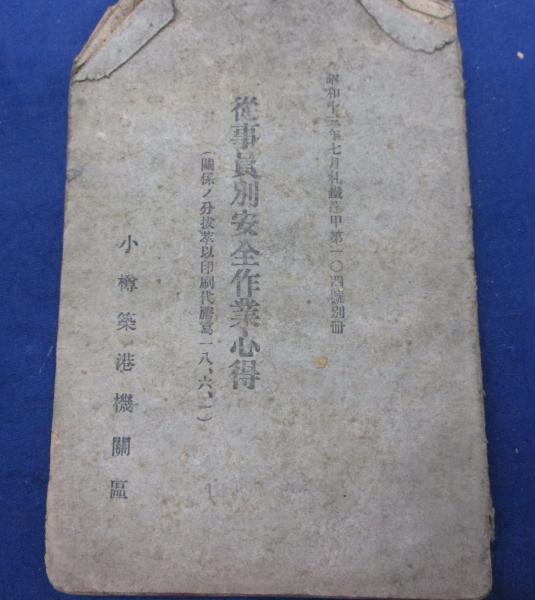 昭和十三年七月札鐵達甲第一〇四號別冊
從事員別安全作業心得
(關係ノ分拔萃以印刷代謄寫一八、六、一)
小樽築港機關區